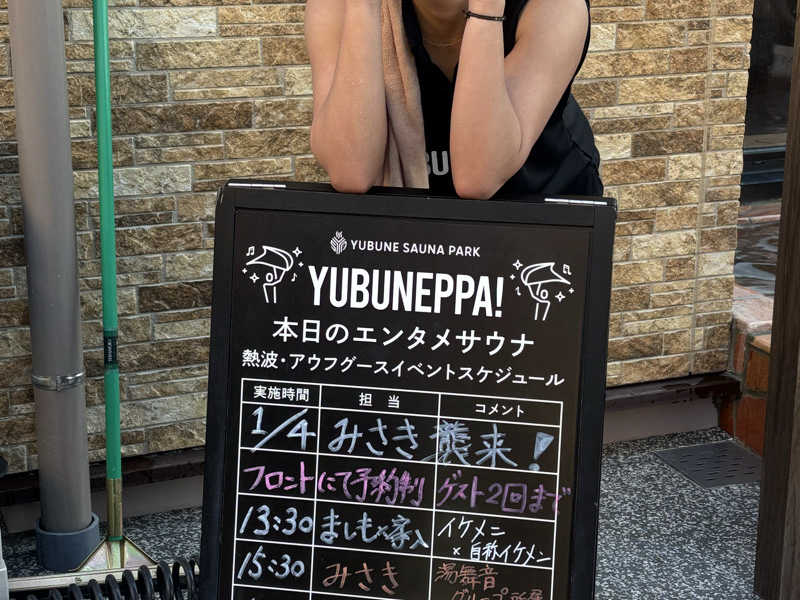 BU
YUBUNE SAUNA PARK
YUBUNEPPA!
本日のエンタメサウナ
熱波・アウフグースイベントスケジュール
実施時間 担当 コメント
1/4 みさき 襲来!
フロントにて予約制 ゲスト2回まで
13:30 ましも×家入 イケメン
×自称イケメン
15:30 みさき 湯舞音
グループ所属